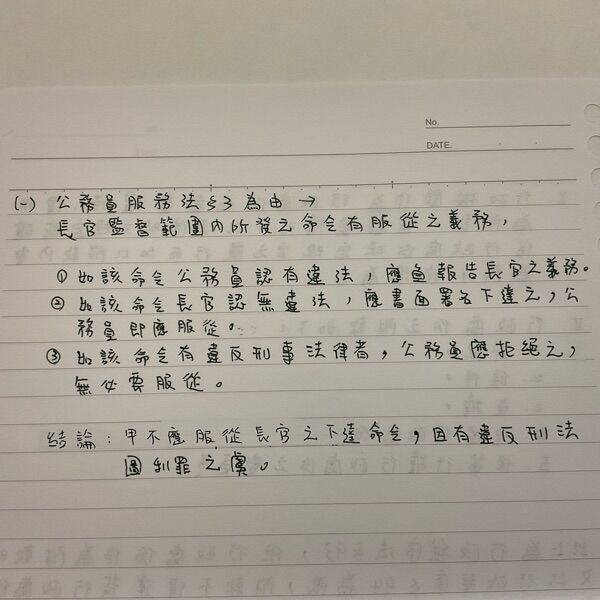 No.
DATE.
(一) 公務員服務法§3為由 →
長官監督範圍內所發之命令有服從之義務,
① 如該命令公務員認有違法,應負報告長官之義務。
② 如該命令長官認無違法,應書面署名下達之,公
務員即應服從。
③ 如該命令有違反刑事法律者,公務員應拒絕之,
無必要服從。
結論:甲不應服從長官之下達命令,因有違反刑法
圖利罪之虞。